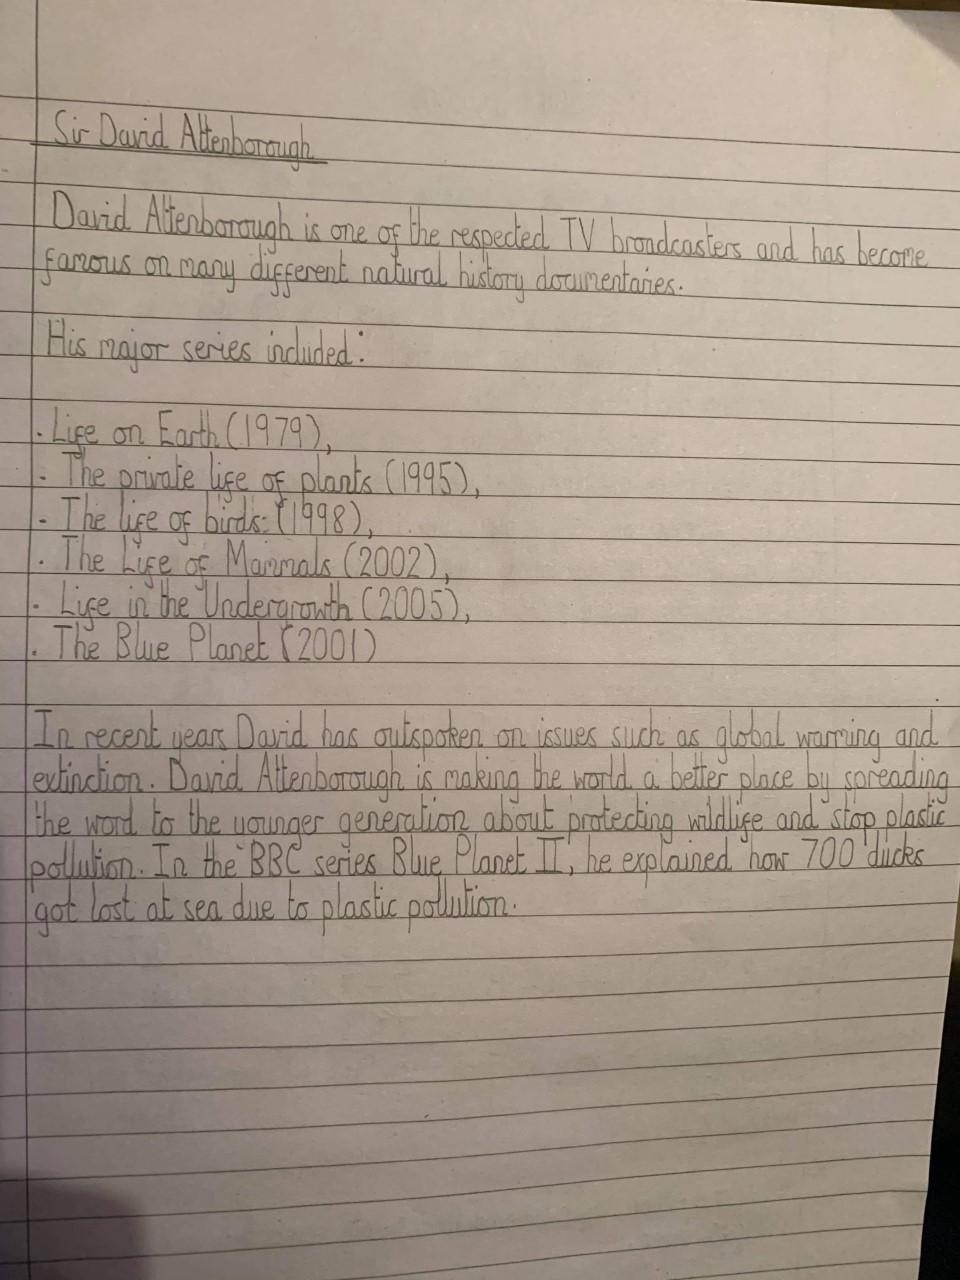 Sir David Attenborough
David Attenborough is one of the respected TV broadcasters and has become
famous on many different natural history documentaries.
His major series included:
· Life on Earth (1979),
· The private life of plants (1995),
- The life of birds: (1998),
· The Life of Mammals (2002),
· Life in the Undergrowth (2005),
· The Blue Planet (2001)
In recent years David has outspoken on issues such as global warming and
extinction. David Attenborough is making the world a better place by spreading
the word to the younger generation about protecting wildlife and stop plastic
pollution. In the BBC series Blue Planet II, he explained how 700 ducks
got lost at sea due to plastic pollution.